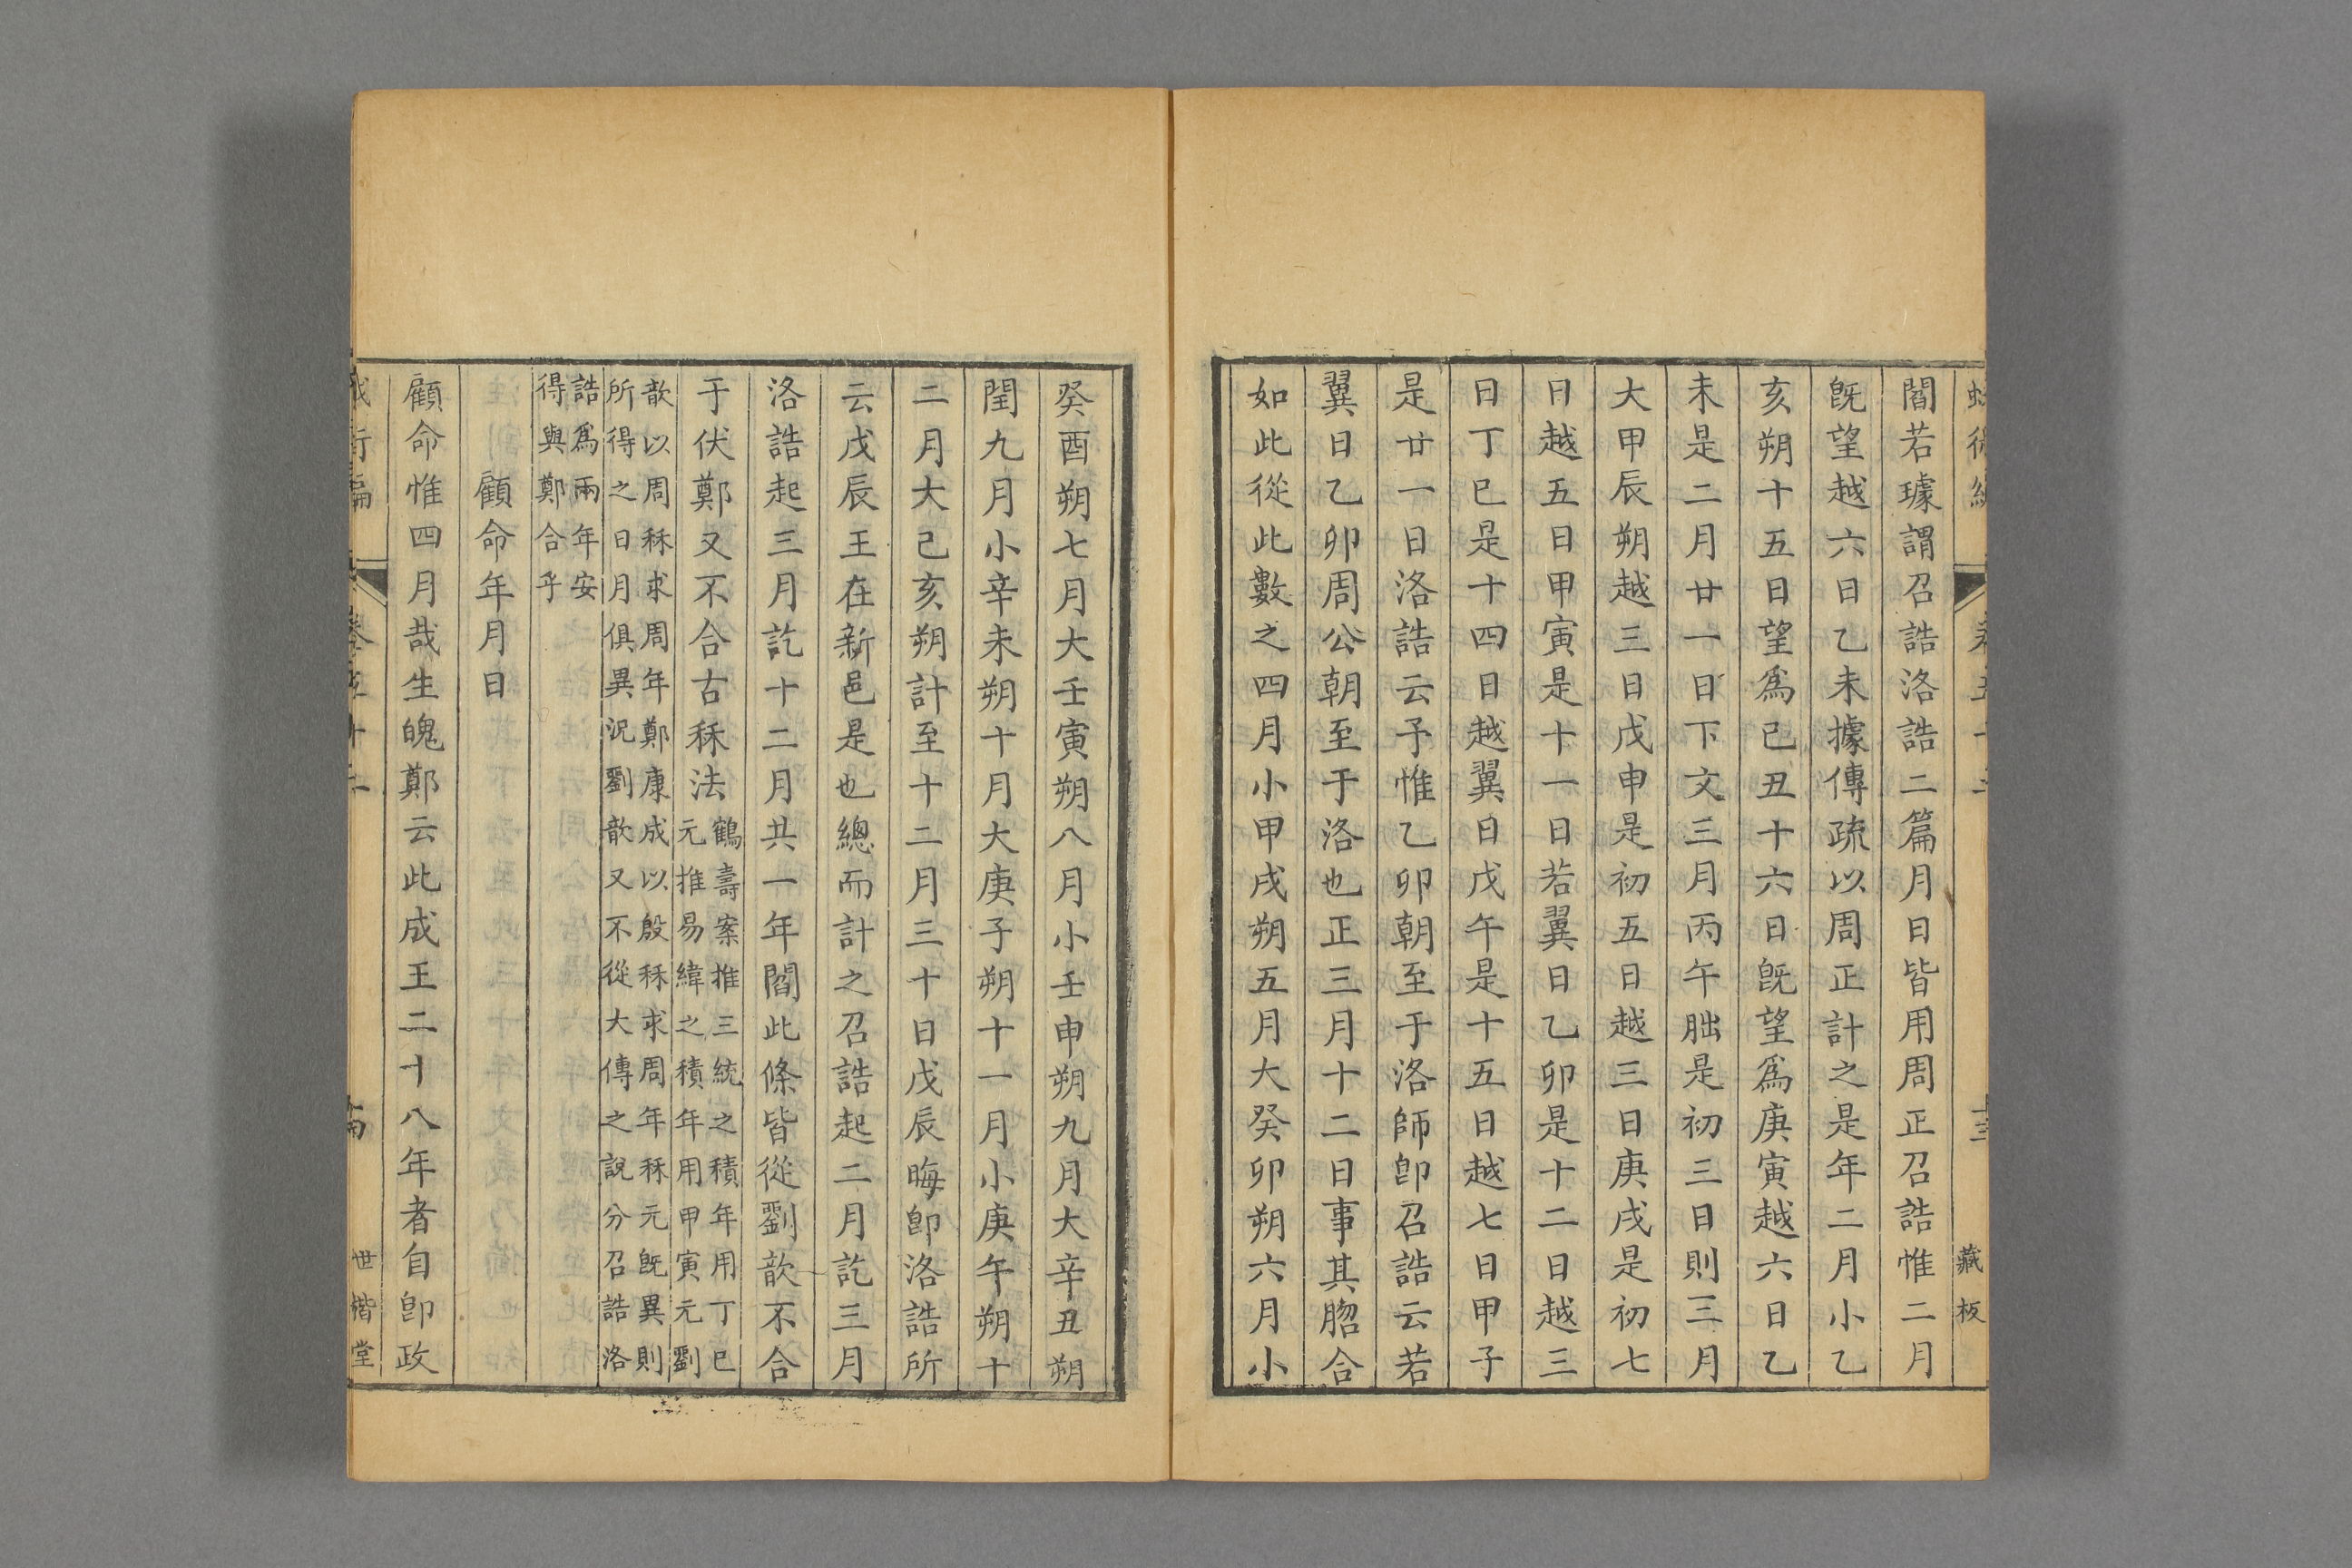 閻若璩謂召誥洛誥二篇月日皆用周正召誥惟二月
旣望越六日乙未據傳疏以周正計之是年二月小乙
亥朔十五日望爲己丑十六日旣望爲庚寅越六日乙
未是二月廿一日下文三月丙午朏是初三日則三月
大甲辰朔越三日戊申是初五日越三日庚戌是初七
日越五日甲寅是十一日若翼日乙卯是十二日越三
日丁巳是十四日越翼日戊午是十五日越七日甲子
是廿一日洛誥云予惟乙卯朝至于洛師卽召誥云若
翼日乙卯周公朝至于洛也正三月十二日事其脗合
如此從此數之四月小甲戌朔五月大癸卯朔六月小
藏板
癸酉朔七月大壬寅朔八月小壬申朔九月大辛丑朔
閏九月小辛未朔十月大庚子朔十一月小庚午朔十
二月大己亥朔計至十二月三十日戊辰晦卽洛誥所
云戊辰王在新邑是也總而計之召誥起二月訖三月
洛誥起三月訖十二月共一年閻此條皆從劉歆不合
于伏鄭又不合古秝法
鶴壽案推三統之積年用丁巳
元推易緯之積年用甲寅元劉
歆以周秝求周年鄭康成以殷秝求周年秝元旣異則
所得之日月俱異況劉歆又不從大傳之說分召誥洛
誥爲兩年安
得與鄭合乎
顧命年月日
顧命惟四月哉生魄鄭云此成王二十八年者自卽政
世楷堂